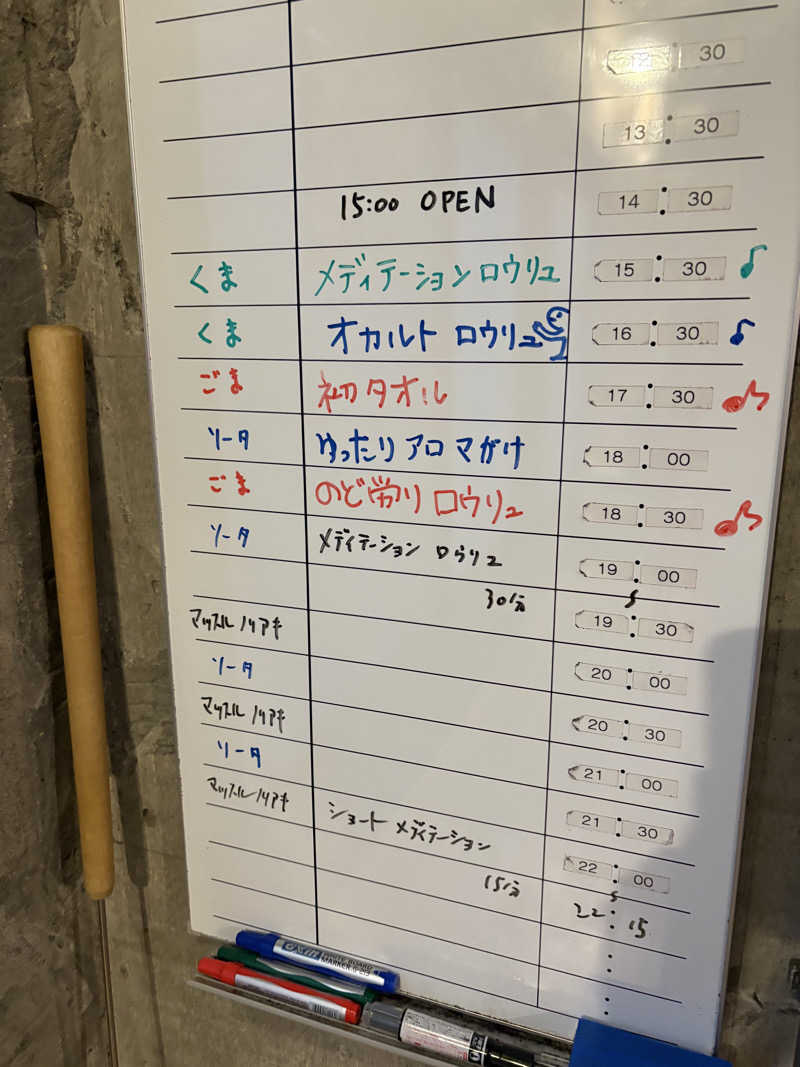 12:30
13:30
15:00 OPEN 14:30
くま メディテーションロウリュ 15:30 ♪
くま オカルト ロウリュ 16:30 ♪
ごま 初タオル 17:30
ソータ ゆったり アロマがけ 18:00
ごま のど労り ロウリュ 18:30
ソータ メディテーション ロウリュ 19:00
30分 19:30
マッスルノリアキ
ソータ 20:00
マッスルノリアキ 20:30
ソータ 21:00
マッスルノリアキ 21:30
ショート メディテーション 22:00
15分 22:15
WHITE BOARD
MARKER